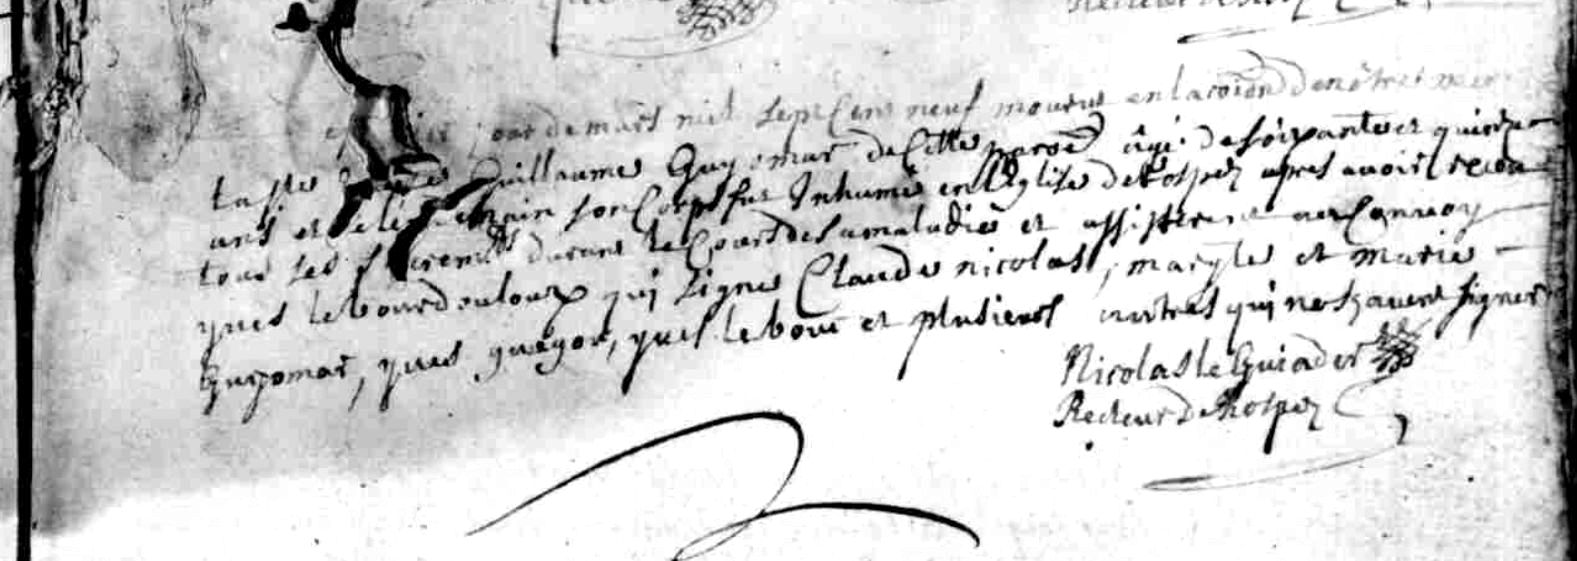 jour de mars mil sept Cens neuf mourut en la coion de nôtre mere
Guillaume Guyomar de Cette paroê âgé de soixante et quinze
ans et le son Corps fut Inhumé en l'Eglise de Rospez apres avoir recou
tous les sacremts durant le Cours de sa maladie et assisterent au Convoy
yves le bourdoulloux qui signe Claude nicolas, maryle et marie
Guyomar, yves guegou, yves le bove et plusieurs autres qui ne sçavent signer
Nicolas le Guiader
Recteur de Rospez